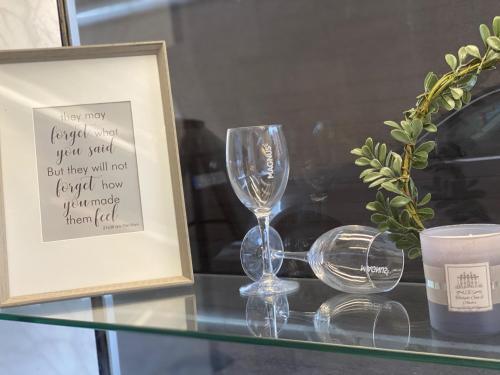 they may
forget what
you said
But they will not
forget how
you made
them feel
MAGNUS
MAGNUS